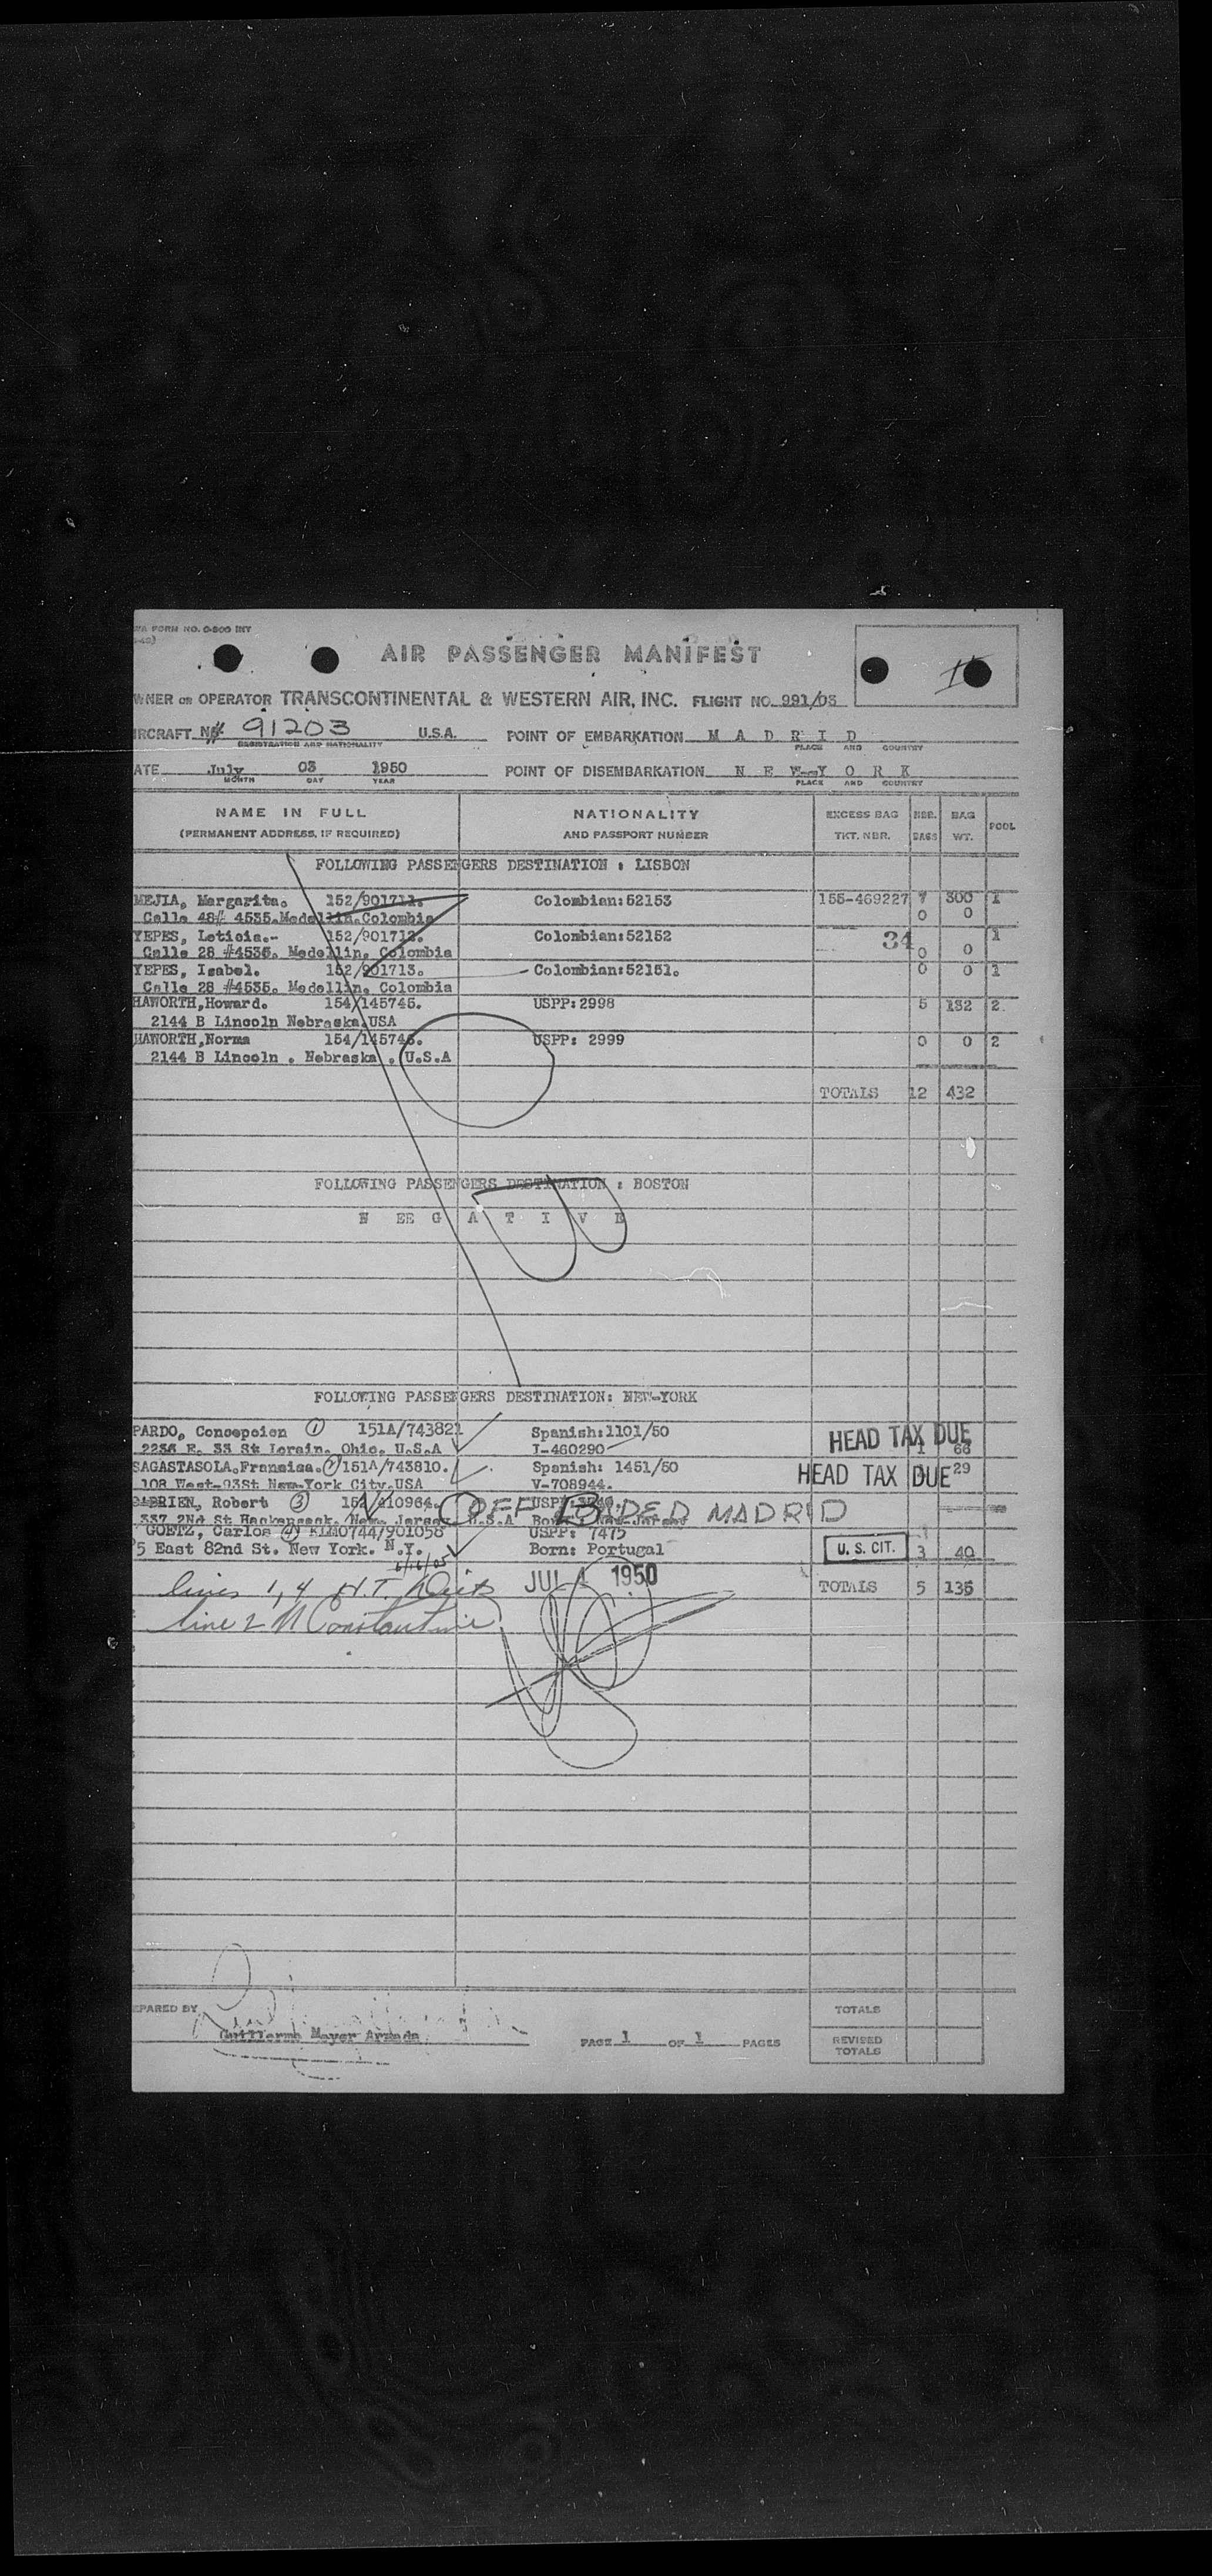 FORM NO. 0-800 INT
AIR PASSENGER MANIFEST
WNER OR OPERATOR TRANSCONTINENTAL & WESTERN AIR, INC. FLIGHT NO. 991/03
IRCRAFT 91203 U.S.A. POINT OF EMBARKATION M A D R I D
REGISTRATION AND NATIONALITY PLACE AND COUNTRY
ATE July 03 1950 POINT OF DISEMBARKATION N E W - Y O R K
MONTH DAY YEAR PLACE AND COUNTRY
NAME IN FULL NATIONALITY EXCESS BAG NBR. BAG POOL
(PERMANENT ADDRESS, IF REQUIRED) AND PASSPORT NUMBER TKT. NBR. BAGS WT.
FOLLOWING PASSENGERS DESTINATION : LISBON
MEJIA, Margarita. 152/901711. Colombian:52153 155-469227 7 300 1
Calle 48# 4535.Medellin.Colombia 0 0
YEPES, Leticia.- 152/901712. Colombian:52152 34 1
Calle 28 #4535. Medellin. Colombia 0 0
YEPES, Isabel. 152/901713. Colombian:52151. 0 0 1
Calle 28 #4535. Medellin. Colombia
HAWORTH,Howard. 154/145745. USPP:2998 5 132 2.
2144 B Lincoln Nebraska.USA
HAWORTH,Norma 154/145746. USPP: 2999 0 0 2
2144 B Lincoln . Nebraska . U.S.A
TOTALS 12 432
FOLLOWING PASSENGERS DESTINATION : BOSTON
N EE G A T I V E
FOLLOWING PASSENGERS DESTINATION: NEW-YORK
PARDO, Concepcion 1 151A/743821 Spanish:1101/50 HEAD TAX DUE
2236 E. 33 St Lorain. Ohio. U.S.A I-460290 1 66
SAGASTASOLA,Fransisa. 2 151A/743810. Spanish: 1451/50 HEAD TAX DUE 29
108 West-93St New-York City.USA V-708944.
Robert 3 OFF LOADED MADRID
337 2Nd St Hackensack. New Jersey U.S.A
GOETZ, Carlos 4 KLM0744/901058 USPP: 7475
5 East 82nd St. New York. N.Y. Born: Portugal U. S. CIT. 3 40
lines 1,4 H.T. JUL 1950 TOTALS 5 135
line 2 M Constantine
EPARED BY TOTALS
Guillermo Meyer Armada PAGE 1 OF 1 PAGES REVISED
TOTALS